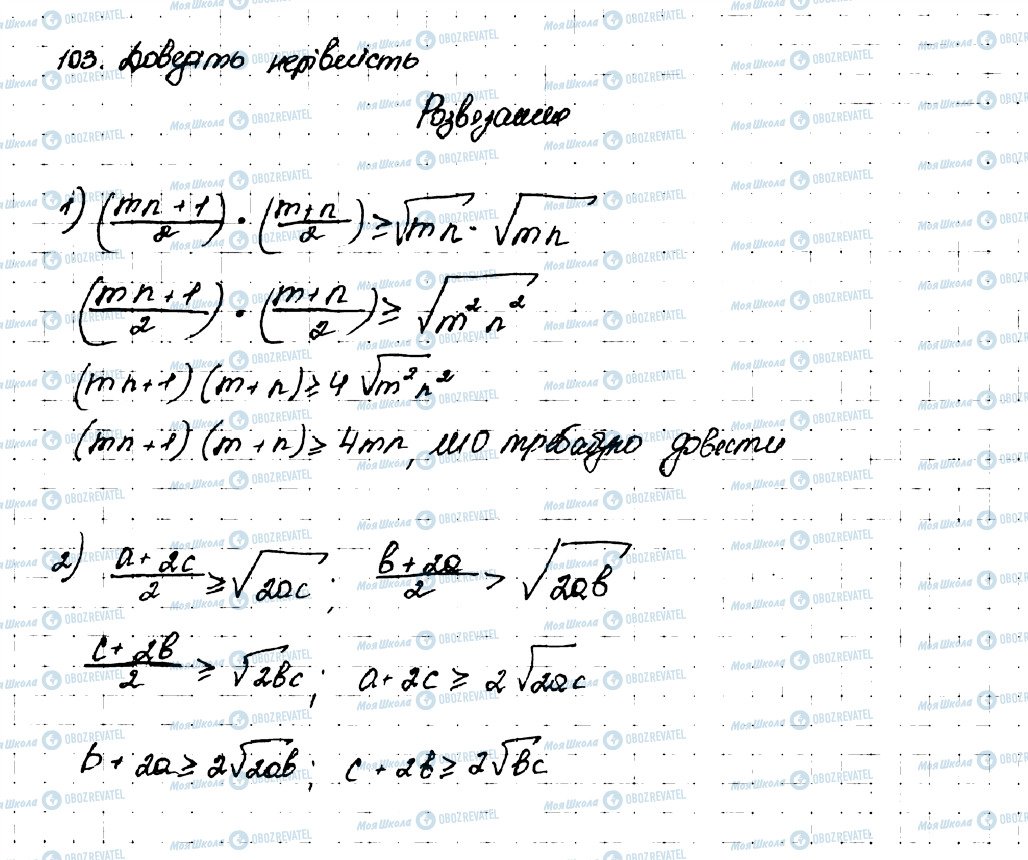 103. Доведіть нерівність
Розв'язання
1) (mn + 1)/2 · (m+n)/2 ≥ √mn · √mn
(mn + 1)/2 · (m+n)/2 ≥ √m²n²
(mn+1)(m+n) ≥ 4√m²n²
(mn+1)(m+n) ≥ 4mn, що требабуло довести
2) (a + 2c)/2 ≥ √2ac ; (b + 2a)/2 > √2ab
(c + 2b)/2 ≥ √2bc ; a + 2c ≥ 2√2ac
b + 2a ≥ 2√2ab ; c + 2b ≥ 2√bc
МояШкола OBOZREVATEL